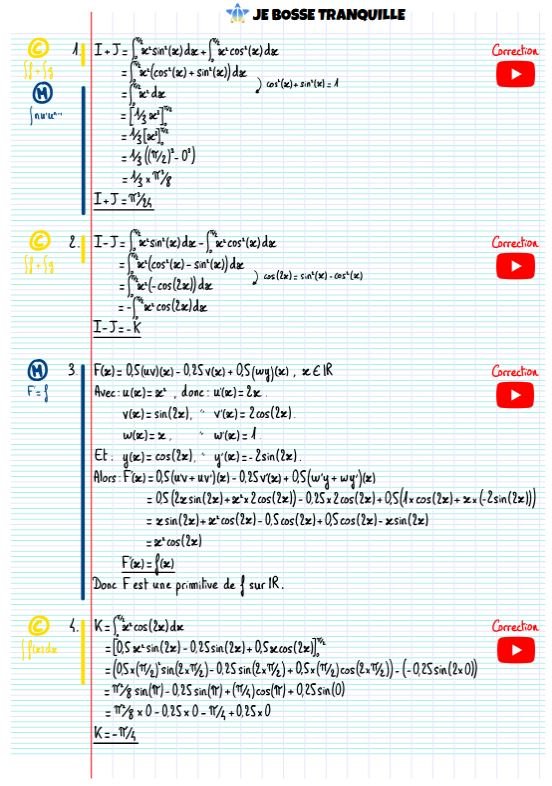 JE BOSSE TRANQUILLE
Correction
C
∫f+∫g
M
∫nu'uⁿ⁻¹
1. I+J = ∫₀^(π/2) x²sin²(x)dx + ∫₀^(π/2) x²cos²(x)dx
= ∫₀^(π/2) x²(cos²(x) + sin²(x))dx
cos²(x) + sin²(x) = 1
= ∫₀^(π/2) x² dx
= [1/3 x³]₀^(π/2)
= 1/3[x³]₀^(π/2)
= 1/3((π/2)³ - 0³)
= 1/3 × π³/8
I+J = π³/24
Correction
C
∫f+∫g
2. I-J = ∫₀^(π/2) x²sin²(x)dx - ∫₀^(π/2) x²cos²(x)dx
= ∫₀^(π/2) x²(cos²(x) - sin²(x))dx
cos(2x) = sin²(x) - cos²(x)
= ∫₀^(π/2) x²(-cos(2x))dx
= -∫₀^(π/2) x² cos(2x)dx
I-J = -K
Correction
M
F'=f
3. F(x) = 0,5(uv)(x) - 0,25v(x) + 0,5(wy)(x), x ∈ IR
Avec : u(x) = x², donc : u'(x) = 2x.
v(x) = sin(2x), " v'(x) = 2cos(2x).
w(x) = x, " w'(x) = 1.
Et : y(x) = cos(2x), " y'(x) = -2sin(2x).
Alors : F'(x) = 0,5(u'v + uv')(x) - 0,25v'(x) + 0,5(w'y + wy')(x)
= 0,5(2x sin(2x) + x² × 2cos(2x)) - 0,25 × 2cos(2x) + 0,5(1 × cos(2x) + x × (-2sin(2x)))
= x sin(2x) + x² cos(2x) - 0,5cos(2x) + 0,5cos(2x) - x sin(2x)
= x² cos(2x)
F'(x) = f(x)
Donc F est une primitive de f sur IR.
Correction
C
∫f(x)dx
4. K = ∫₀^(π/2) x² cos(2x)dx
= [0,5x² sin(2x) - 0,25sin(2x) + 0,5x cos(2x)]₀^(π/2)
= (0,5×(π/2)² sin(2×π/2) - 0,25sin(2×π/2) + 0,5×(π/2)cos(2×π/2)) - (-0,25sin(2×0))
= π²/8 sin(π) - 0,25sin(π) + (π/4)cos(π) + 0,25sin(0)
= π²/8 × 0 - 0,25×0 - π/4 + 0,25×0
K = -π/4